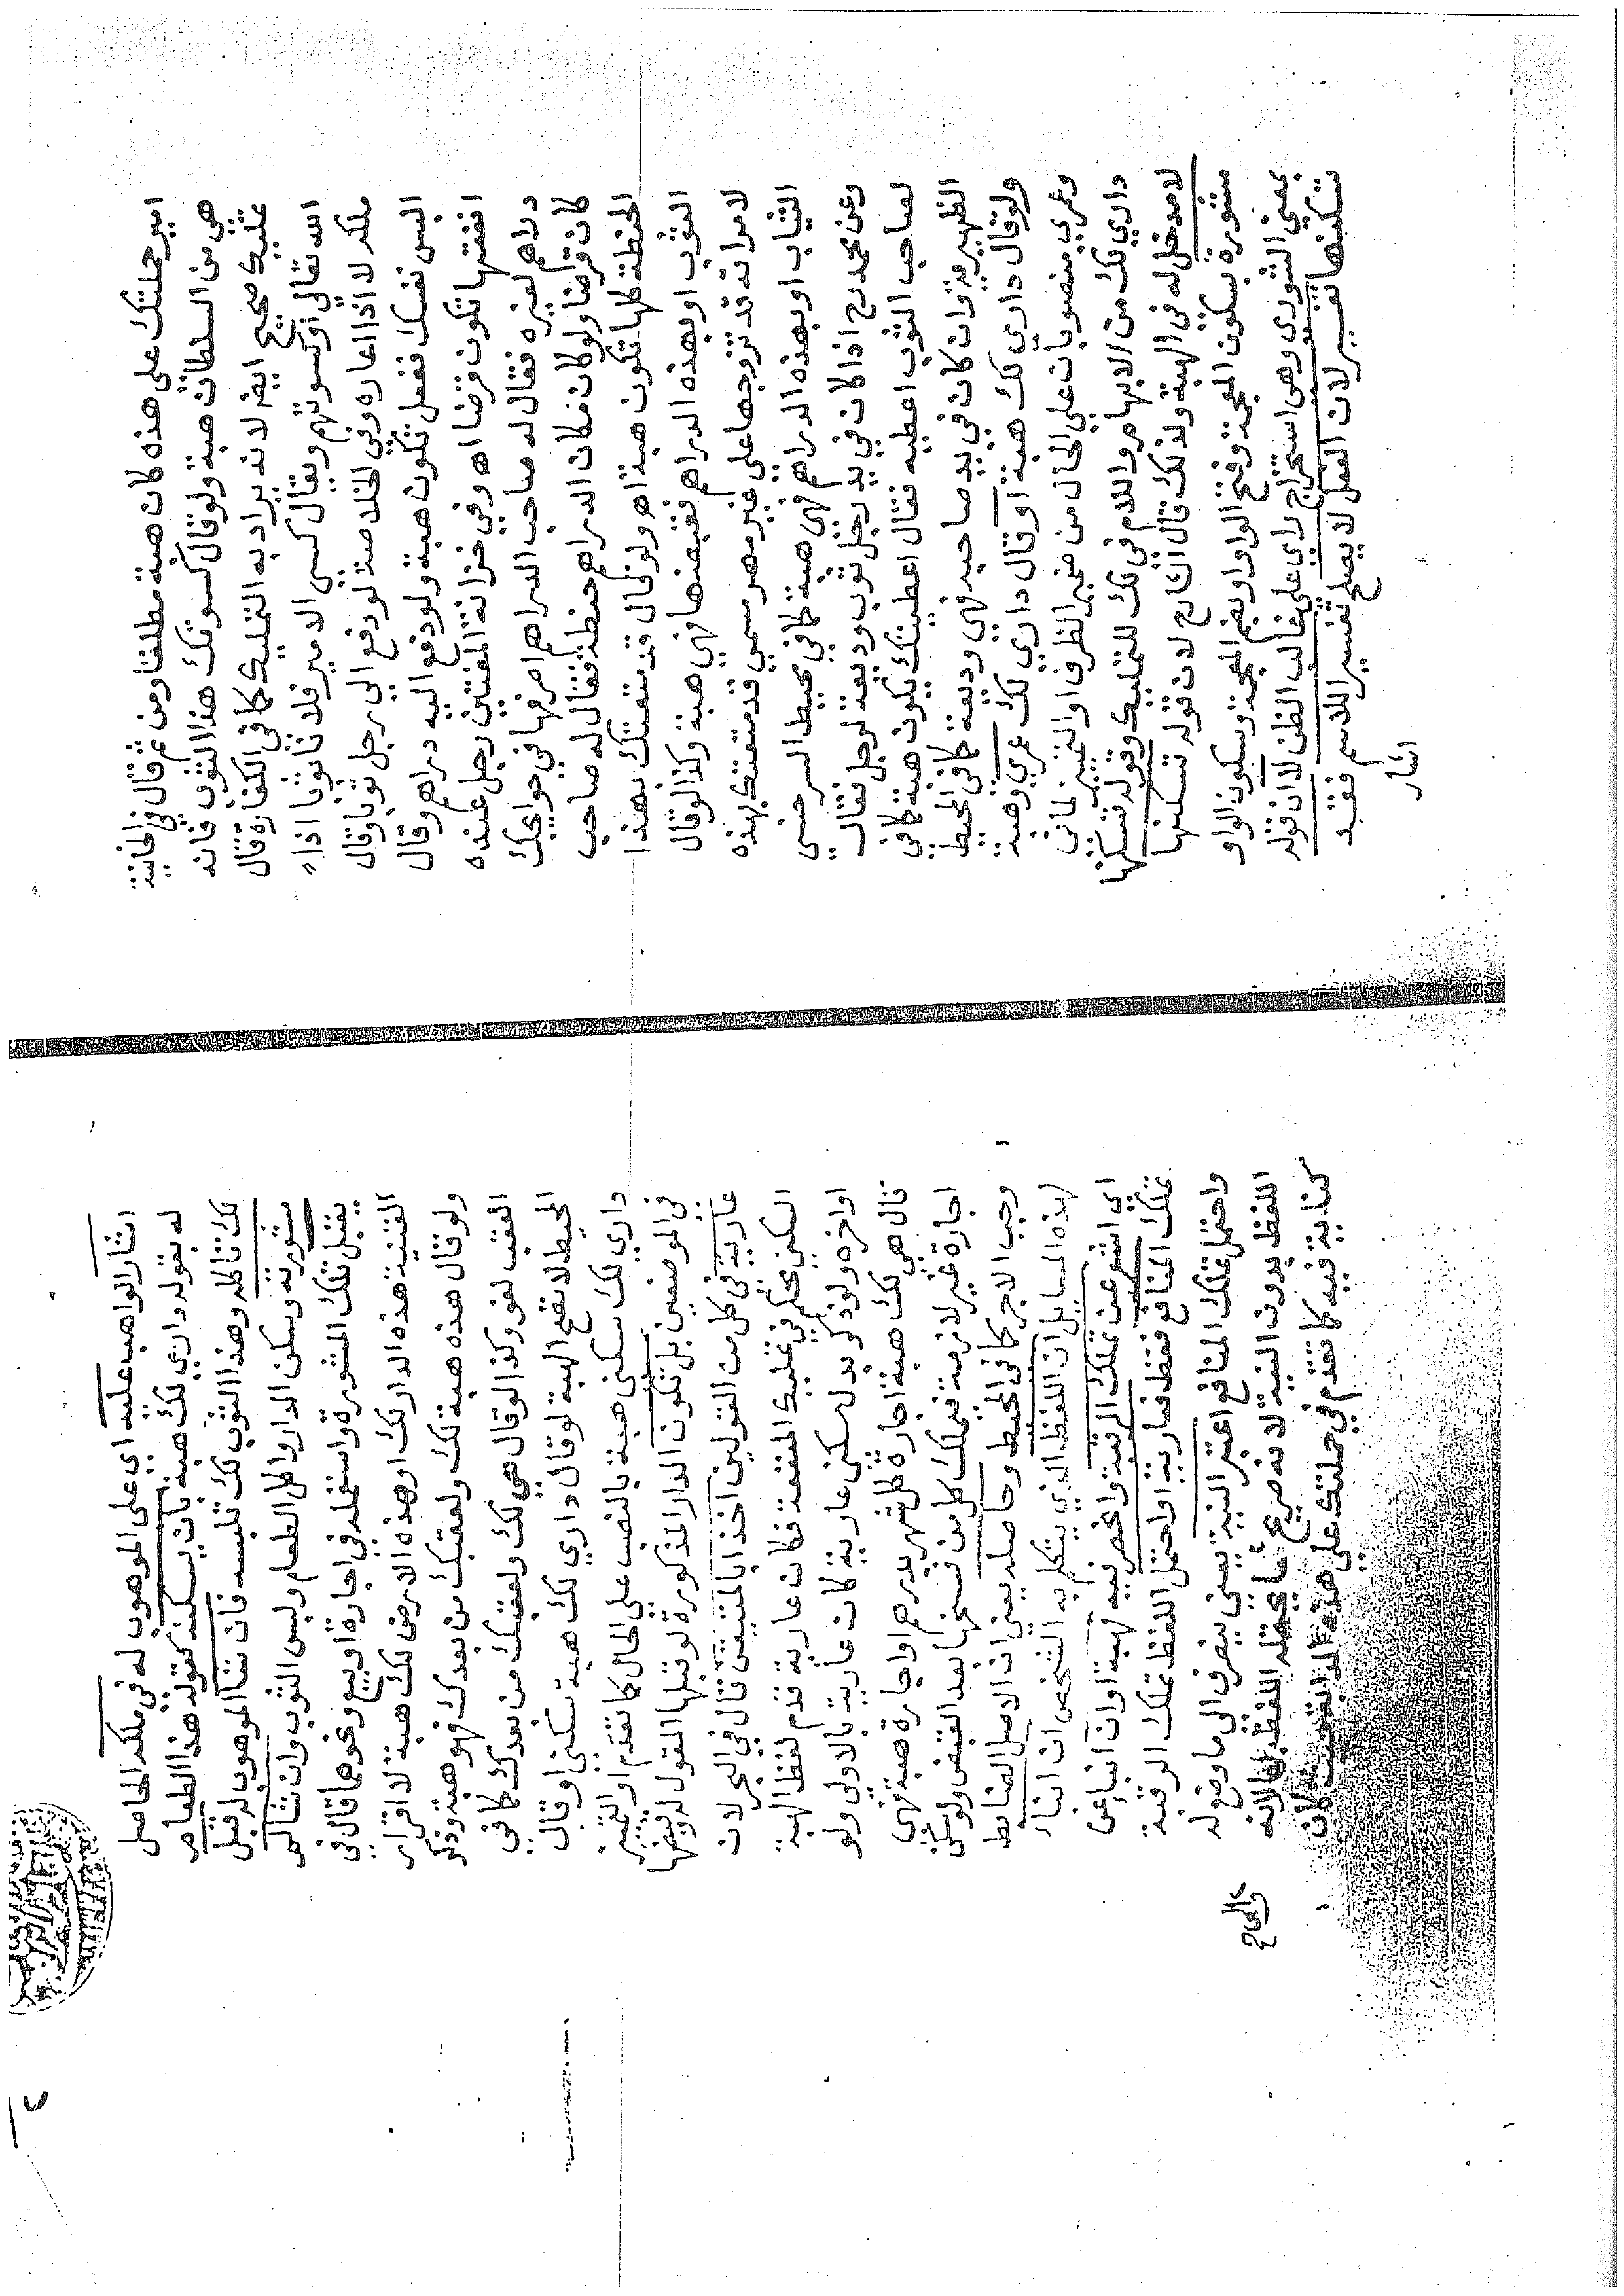 امير حملتك على هذه كان هبة مطلقا ومن ثم قال في الخانية
هي من السلطان هبة ولو قال كسوتك هذا الثوب فانه
تمليك صحيح ايضا لانه يراد به التمليك كما في الكفارة قال
الله تعالى او كسوتهم ويقال كسى الامير فلانا ثوبا اذا
ملكه لا اذا اعاره وفي الخلاصة لو دفع الى رجل ثوبا وقال
البس نفسك ففعل تكون هبة ولو دفع اليه دراهم وقال
انفقها تكون قرضا اه وفي خزانة المفتين رجل عنده
دراهم لغيره فقال له صاحب الدراهم اصرفها في حوايجك
كان قرضا ولو كان مكان الدراهم حنطة فقال له صاحب
الحنطة كلها تكون هبة اه ولو قال قد متعتك بهذا
الثوب او بهذه الدراهم فقبضها فهي هبة وكذا لو قال
لامراة قد تزوجها على غير مهر مسمى قد متعتك بهذه
الثياب او بهذه الدراهم فهي هبة كما في محيط السرخسي
وعن محمد رح اذا كان في يد رجل ثوب وديعة لرجل فقال
لصاحب الثوب اعطنيه فقال اعطيتك يكون هبة كما في
الظهيرية وان كان في يد صاحبه فهي وديعة كما في المحيط
ولو قال داري لك هبة او قال داري لك عمري وهبة
وعمري منصوبان على الحال من ضمير الظرف او التمييز لما في
داري لك من الابهام واللام في لك للتمليك وقوله تسكنها
لا مدخل له في الهبة ولذلك قال الشارح لان قوله تسكنها
مشورة بسكون المعجمة وفتح الواو او بضم المعجمة وسكون الواو
بمعنى الشورى وهي استخراج راي على غالب الظن لا ان قوله
تسكنها تفسير لان الفعل لا يصلح تفسير اللاسم فقد
اشار
اشار الواهب عليه اي على الموهوب له في ملكه الحاصل
له بقوله داري لك هبة بان يسكنه كقوله هذا الطعام
لك تاكله وهذا الثوب لك تلبسه فان شا الموهوب له قبل
مشورته وسكن الدار واكل الطعام ولبس الثوب وان شا لم
يقبل تلك المشورة واستعمله في اجارة او بيع ونحوهما قال في
القنية هذه الدار لك او هذه الارض لك هبة لا اقرار
ولو قال هذه هبة لك ولعقبك من بعدك فهو هبة وذكر
العقب لغو وكذا لو قال هي لك ولعقبك من بعدك كما في
المحيط لا تصح الهبة لو قال داري لك هبة سكنى او قال
داري لك سكنى هبة بالنصب على الحال كما تقدم او التمييز
في الموضعين بل تكون الدار المذكورة لو قبلها المقول له وقبضها
عارية في كل من القولين اخذا بالمتيقن قال في البحر لان
السكنى محكم في تمليك المنفعة فكان عارية قدم لفظ الهبة
او اخره ولو ذكر بدل سكنى عارية كان عارية بالاولى ولو
قال هي لك هبة اجارة كل شهر بدرهم او اجارة هبة فهي
اجارة غير لازمة فيملك كل من فسخها بعد القبض ولو سكن
وجب الاجر كما في المحيط وحاصله يعني ان الاصل الضابط
لهذه المسايل ان اللفظ الذي يتكلم به الشخص ان انباء
اي اشعر عن تملك الرقبة وانحصر فيه فهبة او ان انباء عن
تملك المنافع فقط فعارية او احتمل اللفظ تملك الرقبة
واحتمل تملك المنافع اعتبر النية يعني ينصرف الى ما وضع له
اللفظ بدون النية لانه صريح لا يحتمله اللفظ الا لانه
كناية فيه كما تقدم في حملتك على هذه الدابة